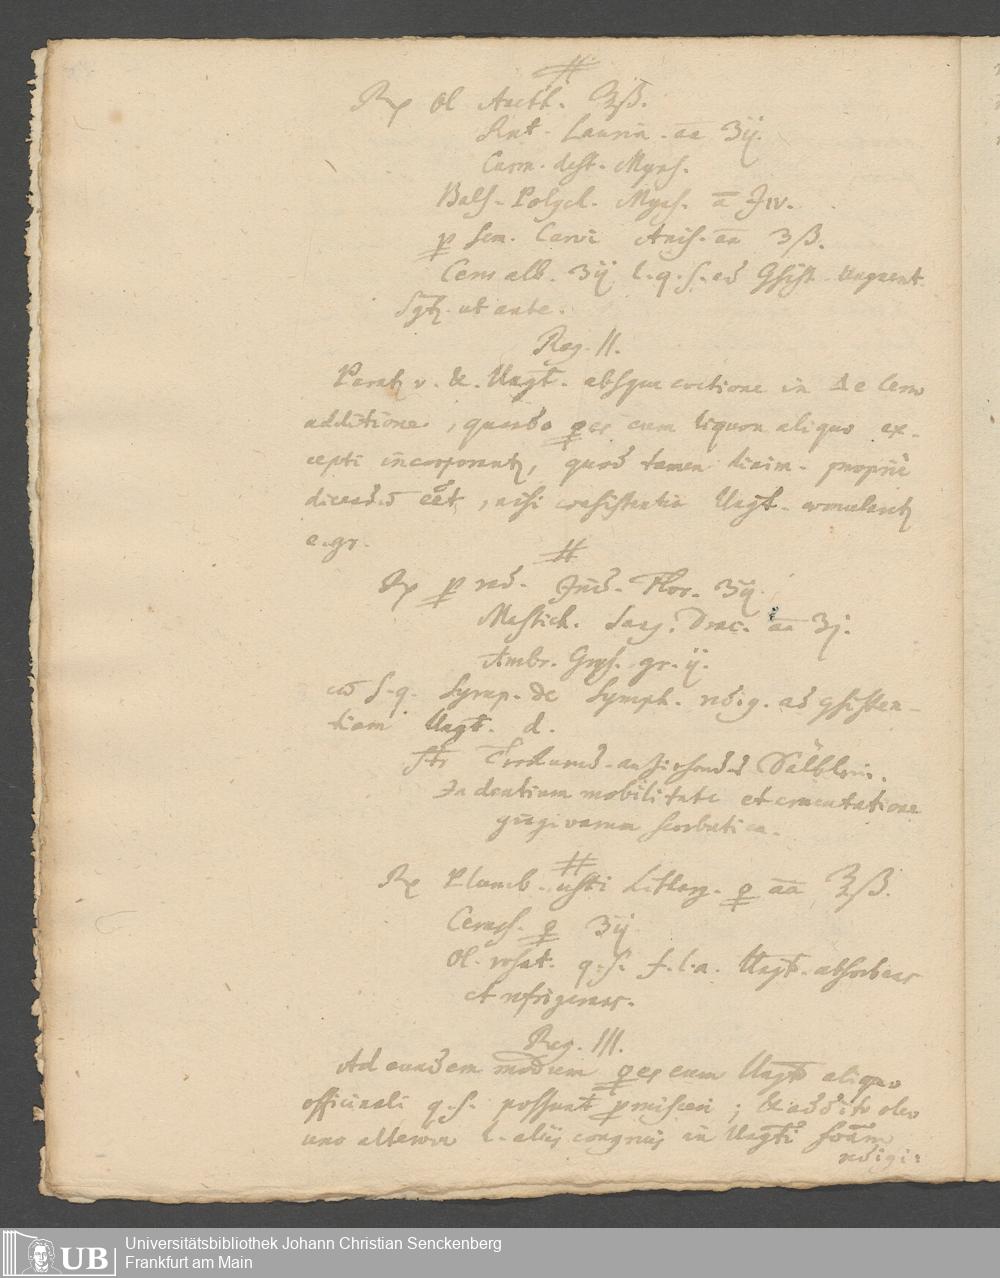 #
Rp Ol Aneth. ℥ß.
Rut. Laurin. aa ʒij.
Carm. dest. Myrs.
Bals. Polych. Myns. a ℈iv.
p sem. Carvi Anis. aa ʒß.
Cerae alb. ʒij l. q. s. ad Gsist. Unguent
Sgtz. ut ante.
Reg. II.
Parantz v. &. Ungt. absque coctione in
additione, quando ppes cum liquore aliquo ex-
cepti incorporantz, quod tamen proprie
dicend eet, nisi consistentia Ungt.
e. gr.
#
Rp p rad. Irid. Flor. ʒij.
Mastich. Sang. Drac. aa ʒj.
Ambr. Grys. gr. ij.
c s. q. Syrup. de Symph. redig. ad Gsisten-
tiam Ungt. d.
Sälblein.
In dentium mobilitate et cruentatione
gingivarum scorbutica.
#
Rp Plumb. usti Litharg. p aa ℥ß.
Ceruss. p ʒij
Ol. rosat. q. s. f. l. a. Ungt. absorbens
et refrigerans.
Reg. III.
Ad eundem modum ppes cum Ungto aliquo
officinali q. s. possunt pmisceri; & addito oleo
uno alterove l. aliis congruis in Ungti formam
redigi:
Universitätsbibliothek Johann Christian Senckenberg
Frankfurt am Main
UB